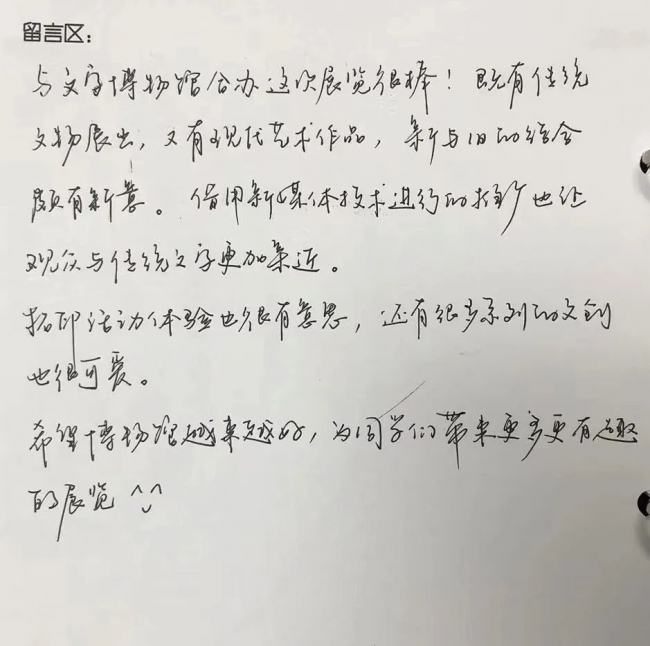 留言区：
与文字博物馆合办这次展览很棒！既有传统
文物展出，又有现代艺术作品，新与旧的结合
颇有新意。借用新媒体技术进行的推广也让
观众与传统文字更加亲近。
拓印活动体验也很有意思，还有很多系列的文创
也很可爱。
希望博物馆越来越好，为同学们带来更多更有趣
的展览 ^‿^